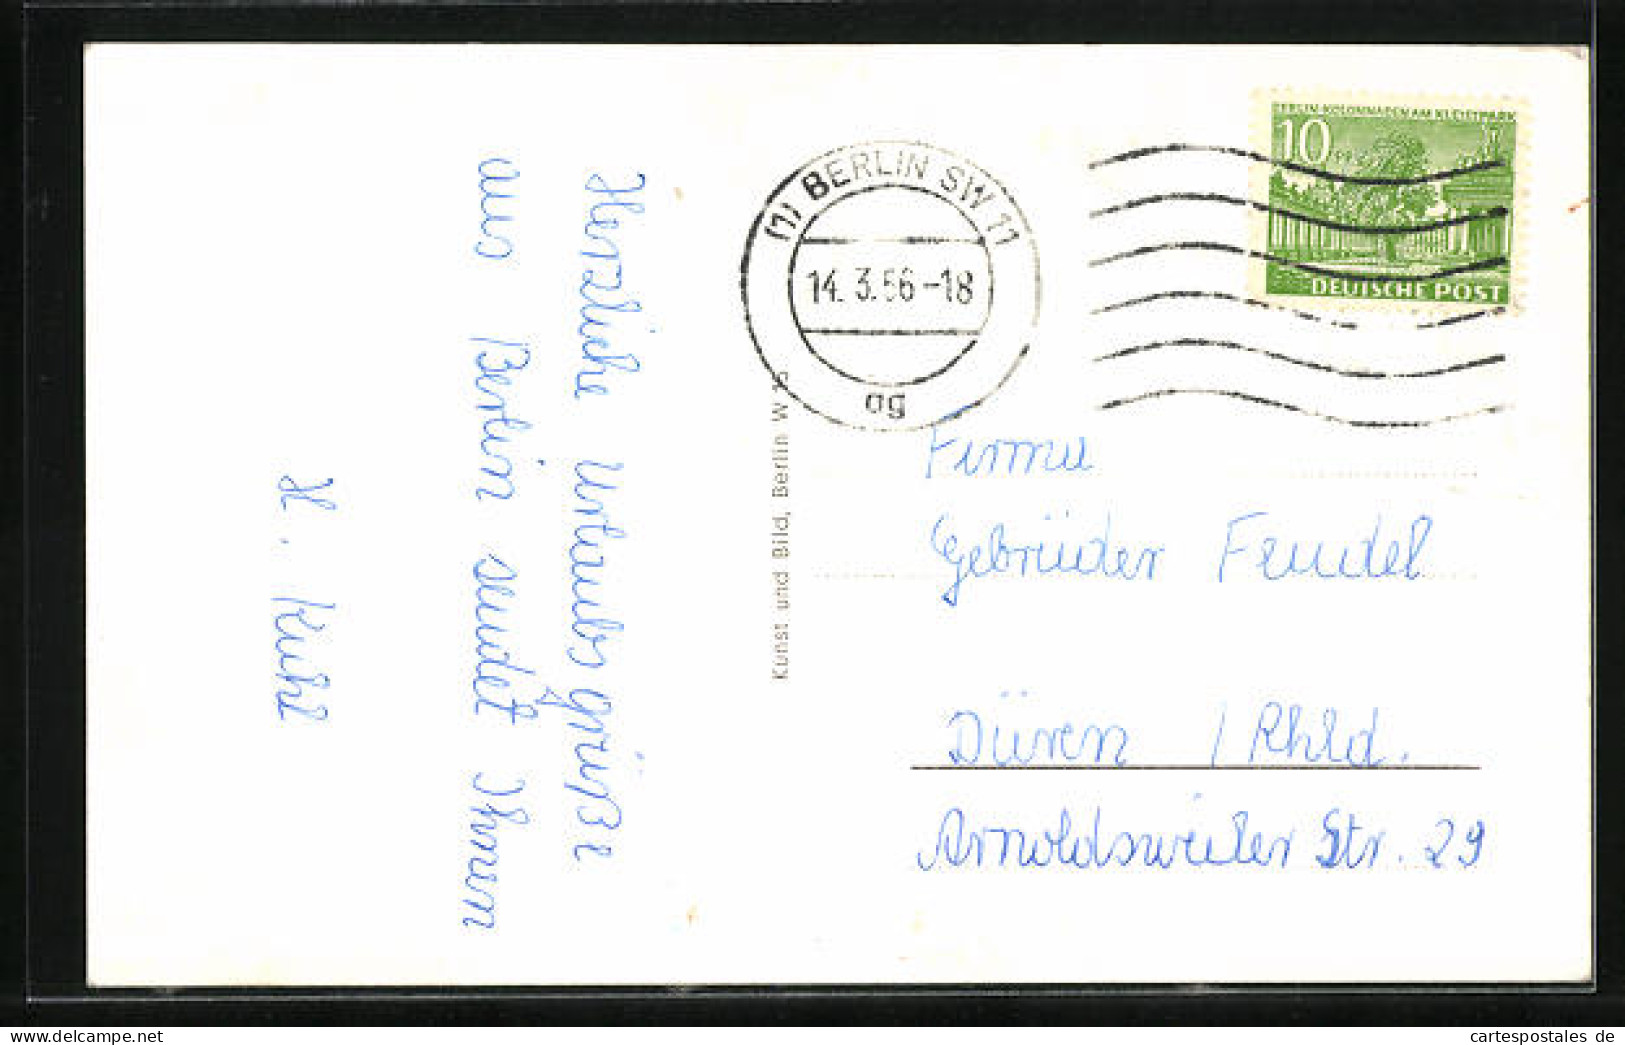 Herzliche Urlaubsgrüße
aus Berlin sendet Ihnen
H. Kuhl
Kunst und Bild, Berlin W
(1) BERLIN SW 11
14. 3. 56 -18
ag
BERLIN-KOLONNADEN AM KLEISTPARK
10
DEUTSCHE POST
Firma
Gebrüder Feudel
Düren / Rhld.
Arnoldsweiler Str. 29
cartespostales de